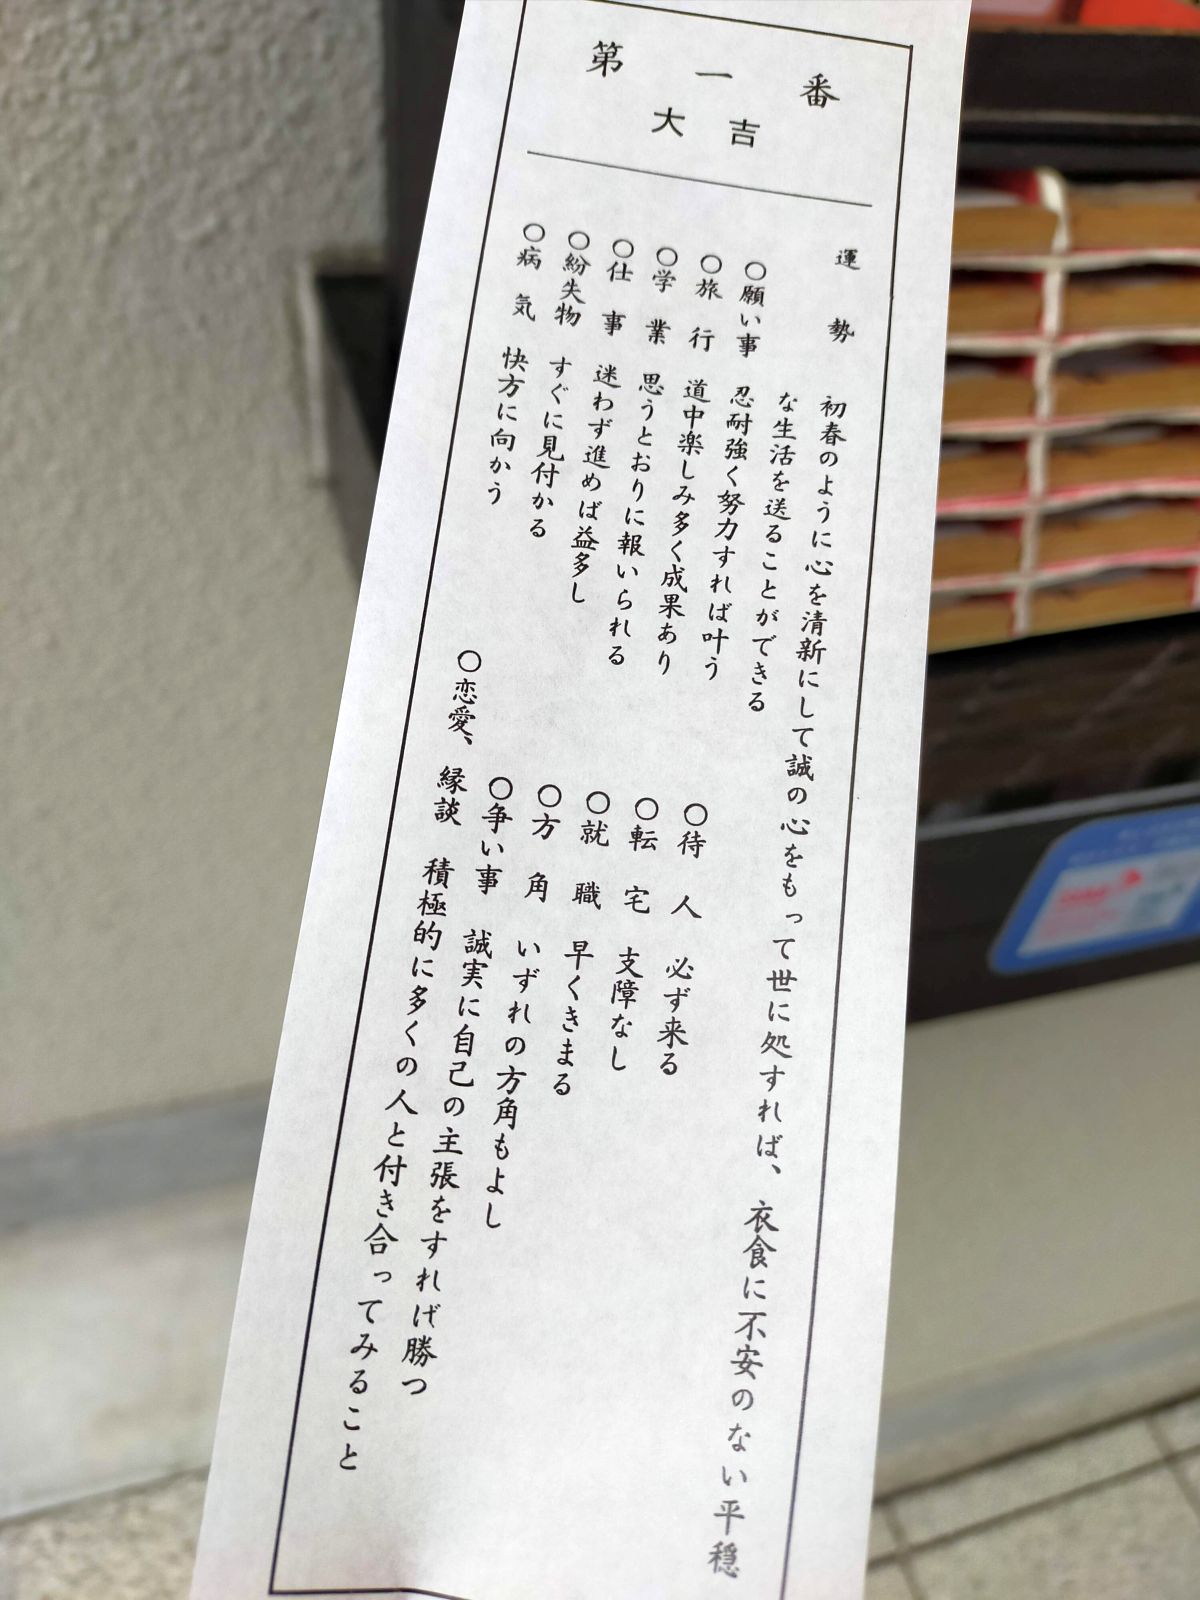 第一番
大吉
運勢 初春のように心を清新にして誠の心をもって世に処すれば、衣食に不安のない平穏
な生活を送ることができる
○願い事 忍耐強く努力すれば叶う
○旅行 道中楽しみ多く成果あり
○学業 思うとおりに報いられる
○仕事 迷わず進めば益多し
○紛失物 すぐに見付かる
○病気 快方に向かう
○待人 必ず来る
○転宅 支障なし
○就職 早くきまる
○方角 いずれの方角もよし
○争い事 誠実に自己の主張をすれば勝つ
○恋愛、縁談 積極的に多くの人と付き合ってみること